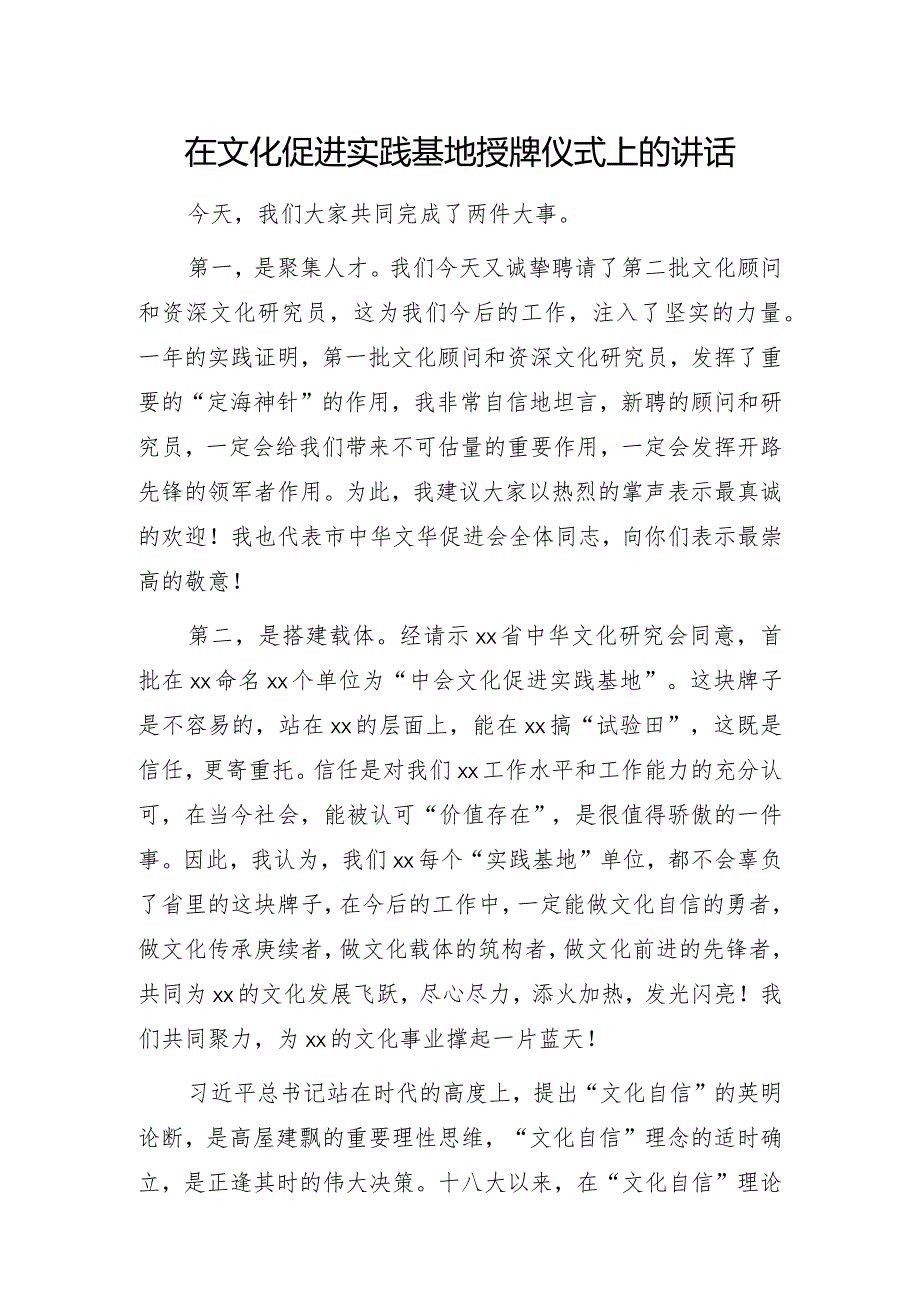 在文化促进实践基地授牌仪式上的讲话
今天，我们大家共同完成了两件大事。
第一，是聚集人才。我们今天又诚挚聘请了第二批文化顾问
和资深文化研究员，这为我们今后的工作，注入了坚实的力量。
一年的实践证明，第一批文化顾问和资深文化研究员，发挥了重
要的“定海神针”的作用，我非常自信地坦言，新聘的顾问和研
究员，一定会给我们带来不可估量的重要作用，一定会发挥开路
先锋的领军者作用。为此，我建议大家以热烈的掌声表示最真诚
的欢迎！我也代表市中华文华促进会全体同志，向你们表示最崇
高的敬意！
第二，是搭建载体。经请示xx省中华文化研究会同意，首
批在xx命名xx个单位为“中会文化促进实践基地”。这块牌子
是不容易的，站在xx的层面上，能在xx搞“试验田”，这既是
信任，更寄重托。信任是对我们xx工作水平和工作能力的充分认
可，在当今社会，能被认可“价值存在”，是很值得骄傲的一件
事。因此，我认为，我们xx每个“实践基地”单位，都不会辜负
了省里的这块牌子，在今后的工作中，一定能做文化自信的勇者，
做文化传承庚续者，做文化载体的筑构者，做文化前进的先锋者，
共同为xx的文化发展飞跃，尽心尽力，添火加热，发光闪亮！我
们共同聚力，为xx的文化事业撑起一片蓝天！
习近平总书记站在时代的高度上，提出“文化自信”的英明
论断，是高屋建飘的重要理性思维，“文化自信”理念的适时确
立，是正逢其时的伟大决策。十八大以来，在“文化自信”理论